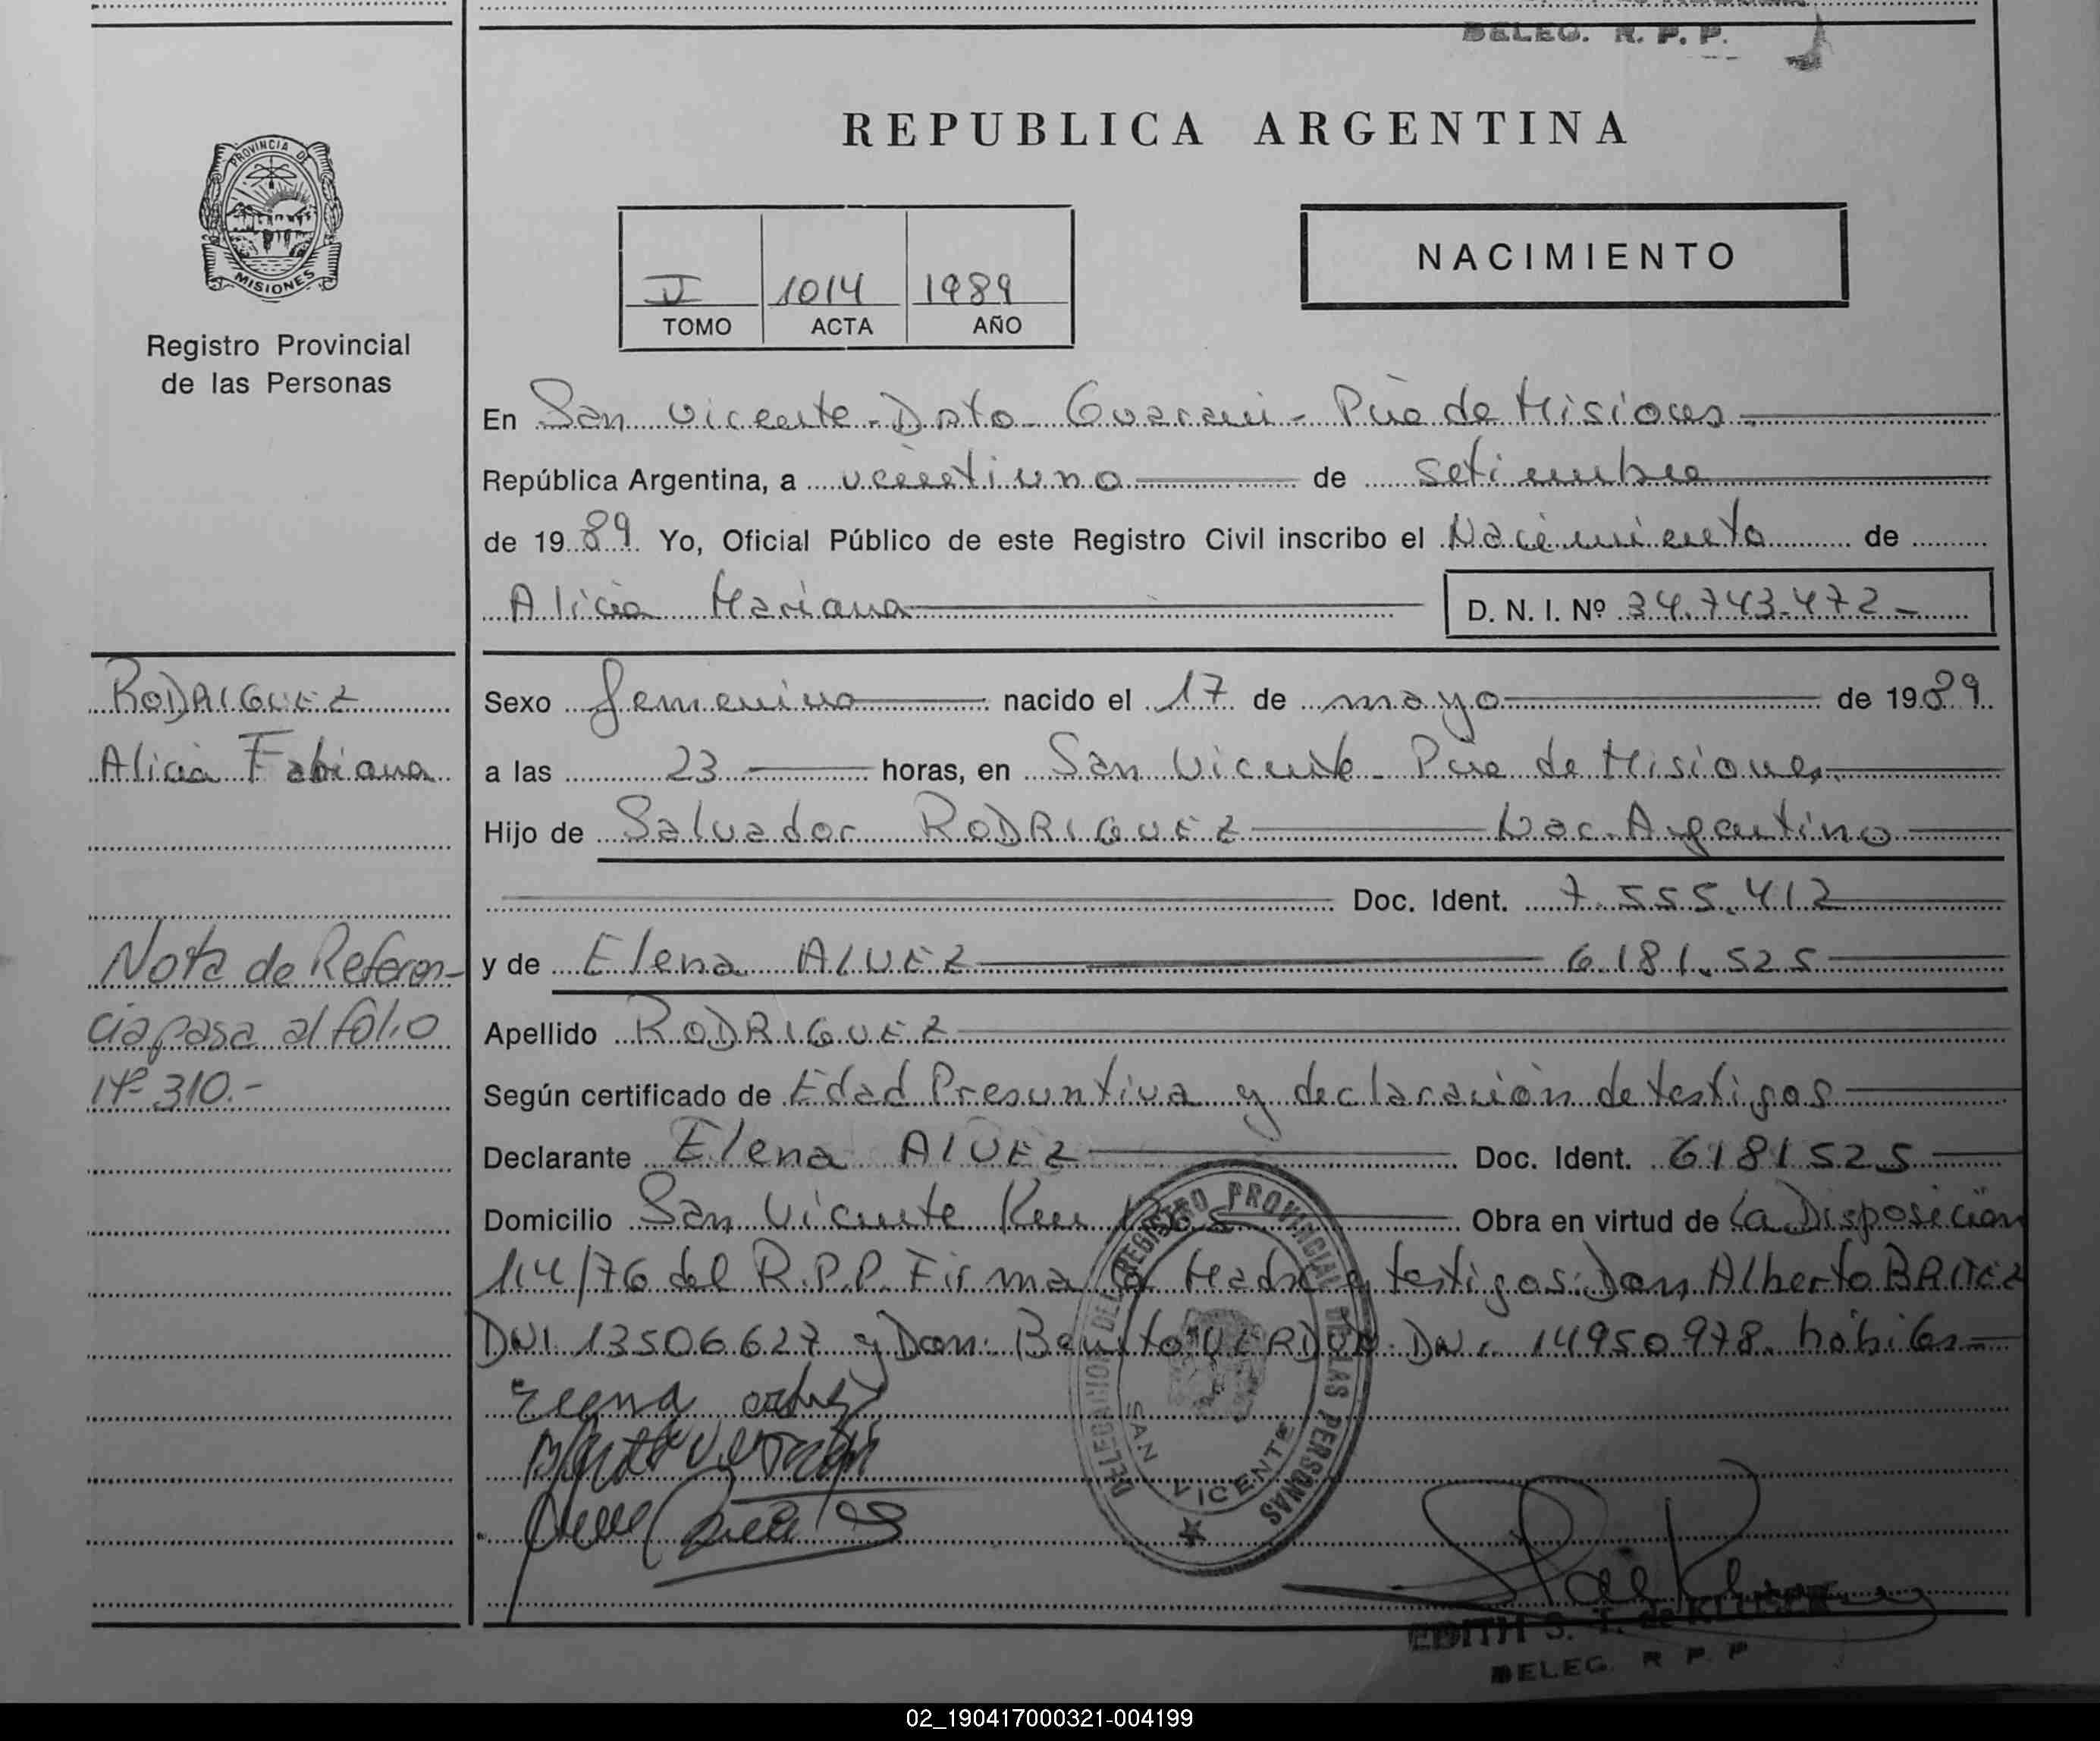 DELEG. R. P. P.
REPUBLICA ARGENTINA
PROVINCIA DE
MISIONES
Registro Provincial
de las Personas
II 1014 1989
TOMO ACTA AÑO
NACIMIENTO
En San Vicente - Dpto Guarani - Pcia de Misiones
República Argentina, a veintiuno de setiembre
de 1989 Yo, Oficial Público de este Registro Civil inscribo el Nacimiento de
Alicia Mariana D. N. I. Nº 34.743.472
RODRIGUEZ
Alicia Fabiana
Nota de Referen-
cia pasa al folio
Nº 310.-
Sexo femenino nacido el 17 de mayo de 1989
a las 23 horas, en San Vicente - Pcia de Misiones
Hijo de Salvador RODRIGUEZ Nac. Argentino
Doc. Ident. 7.555.412
y de Elena ALVEZ 6.181.525
Apellido RODRIGUEZ
Según certificado de Edad Presuntiva y declaración de testigos
Declarante Elena AlVEZ Doc. Ident. 6181525
Domicilio San Vicente Km Obra en virtud de la Disposición
114/76 del R.P.P. Firma la Madre y testigos: Don Alberto BAITEZ
DNI 13506627 y Don: Benito VERDUN DNi 14950978 hábiles
DELEGACION DEL REGISTRO PROVINCIAL DE LAS PERSONAS
SAN VICENTE
EDITH S. T. de
DELEG. R P P
02_190417000321-004199